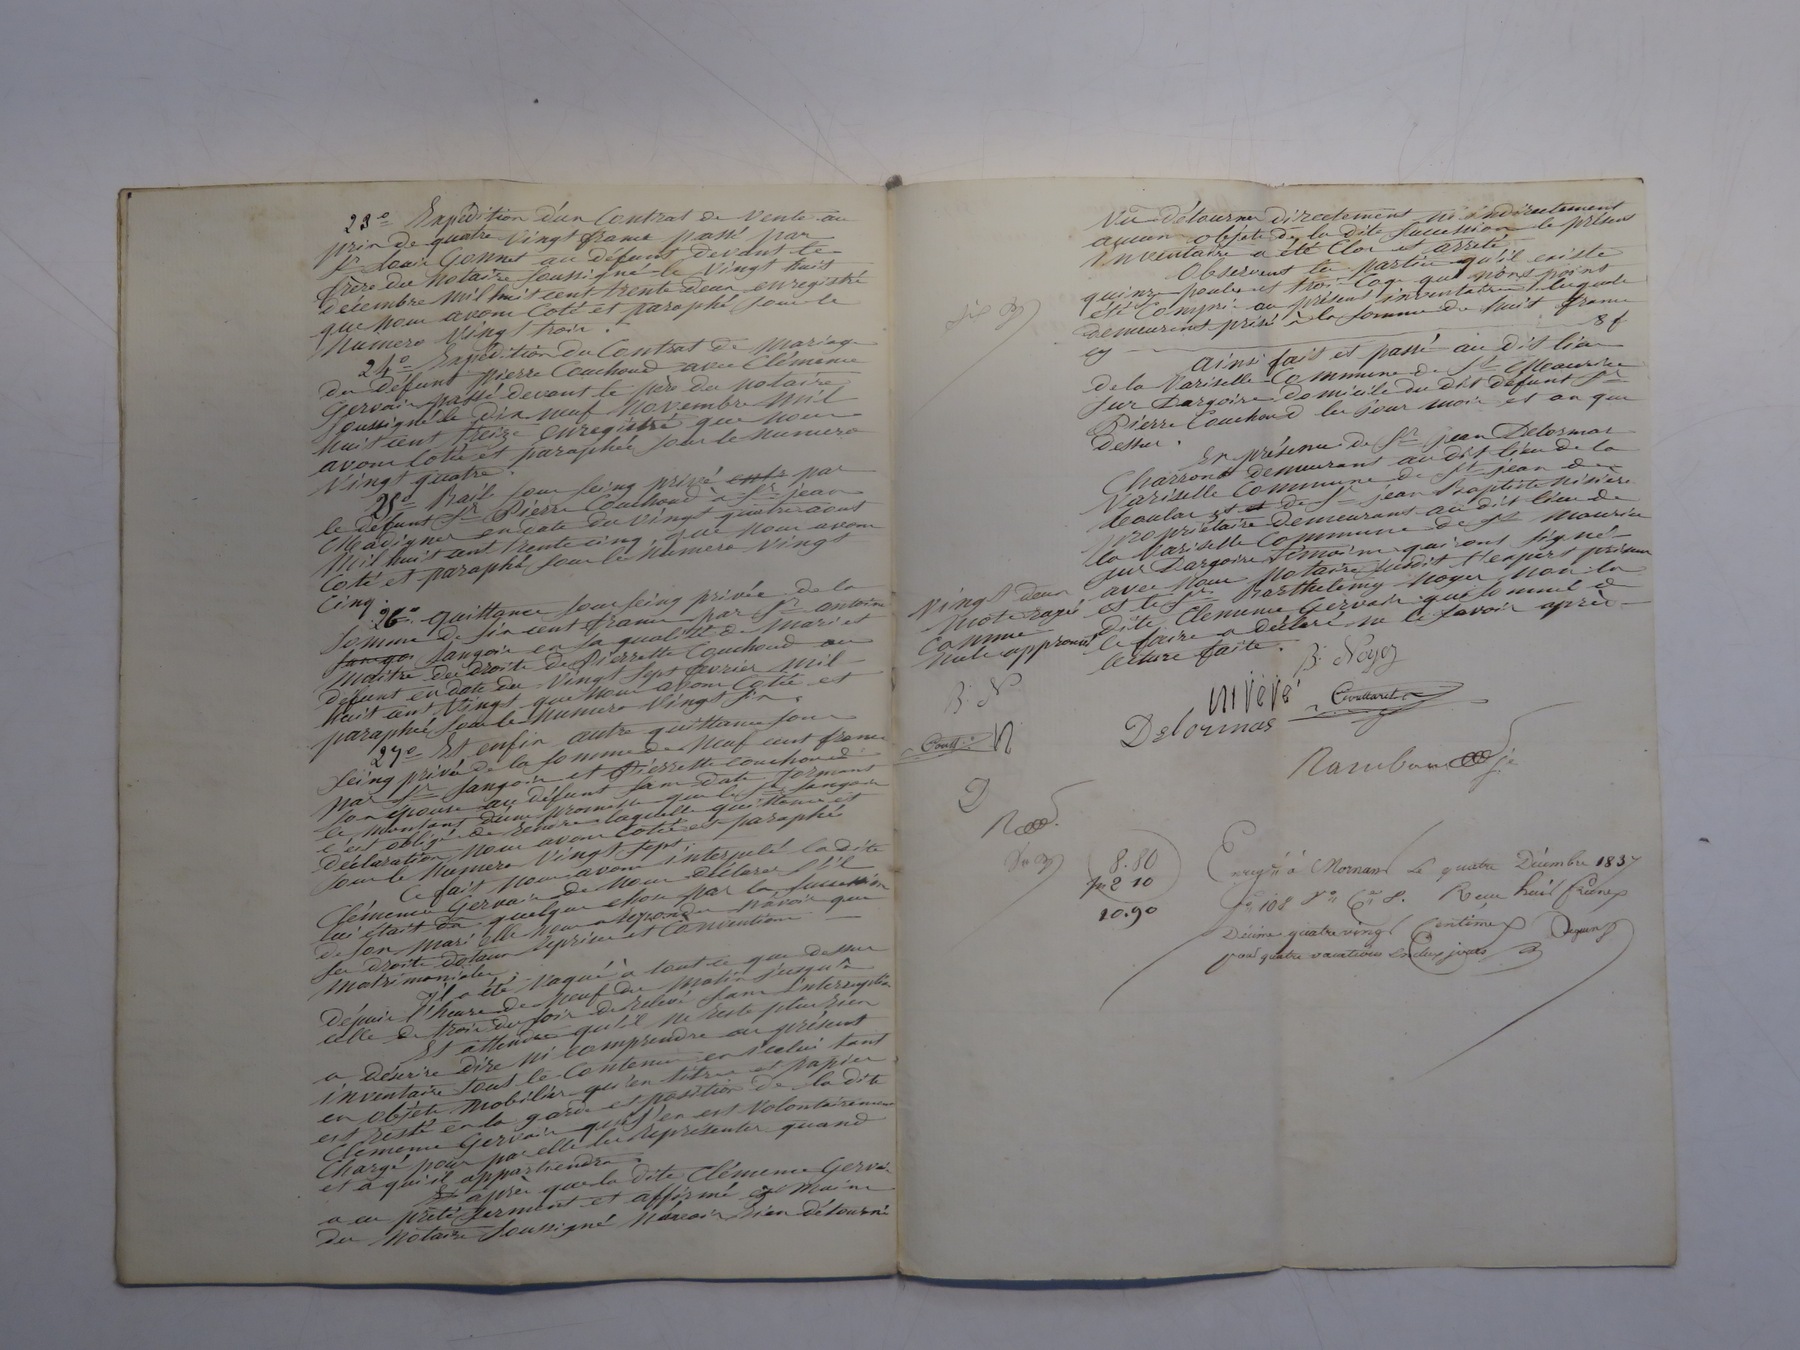 23° Expédition d'un Contrat de Vente au
prix de quatre vingt franc passé par
Sr Louis Gonnet au défunt devant le
frère du notaire soussigné le vingt huit
décembre mil huit cent trente deux enregistré
que nous avons coté et paraphé sous le
numero vingt trois.
24° Expédition du Contrat de Mariage
du défunt pierre Couchoud avec Clémence
Gervais passé devant le père du notaire
soussigné le dix neuf novembre mil
huit cent treize enregistré que nous
avons cotée et paraphée sous le numero
vingt quatre.
25° Bail sous seing privé entr par
le défunt Sr Pierre Couchoud à Sr jean
en date du vingt quatre aout
mil huit cent trente cinq que nous avons
coté et paraphé sous le numero vingt
cinq.
26° quittance sous seing privée de la
somme de six cent francs par Sr antoine
Jangois en sa qualité de mari et
maitre des droits de Pierrette Couchoud au
défunt en date du vingt sept fevrier mil
huit cent vingt que nous avons cotée et
paraphée sous le numero vingt six.
27° Et enfin autre quittance sous
seing privée de la somme de neuf cent francs
par Sr Jangois et Pierrette Couchoud
son épouse au défunt sans date formant
le montant d'une promesse que le Sr Jangois
s'est obligé de rendre laquelle quittance et
déclaration nous avons cotée et paraphé
sous le numero vingt sept.
Ce fait nous avons interpelé la dite
Clémence Gervais de nous déclarer s'il
lui était du quelque chose par la succession
de son mari elle nous a répondu n'avoir que
ses droits dotaux reprises et conventions
matrimoniales.
Il a été vaqué à tout ce que dessus
depuis l'heure de neuf du matin jusqu'à
celle de trois du soir de relevé sans interruption
Et attendu qu'il ne reste plus rien
a décrire dire ni comprendre au présent
inventaire tout le contenu en icelui tant
en objets mobilier qu'en titres et papier
est resté en la garde et position de la dite
Clémence Gervais qui s'en est volontairement
chargé pour par elle les représenter quand
et à qui il appartiendra.
Et après que la dite Clémence Gervais
a eu prêté serment et affirmé ès mains
du notaire soussigné n'avoir rien détourné
Vu détourner directement ni indirectement
aucun objets de la dite succession le présent
inventaire a été clos et arrêté.
Observent les parties qu'il existe
quinze poules et trois coqs qui n'ont point
été compris au présent inventaire lesquels
demeurent prisé à la somme de huit francs
cy 8 f
Ainsi fait et passé au dit lieu
de la Variselle Commune de St Maurice
sur Dargoire domicile du dit défunt Sr
Pierre Couchoud les jour mois et an que
dessus.
En présence de Sr jean Delormas
Charron demeurant au dit lieu de la
Variselle Commune de St jean de
toutas et de Sr jean Baptiste
propriétaire demeurant au dit lieu de
la Variselle Commune de St Maurice
sur Dargoire témoins qui ont signé
avec nous Notaire susdit l'expert priseur
et le Sr Barthelemy Noyer non la
dite Clémence Gervais que sommé de
le faire a déclaré ne le savoir après
lecture faite.
Vingt deux
mots rayé
comme
nuls approuvé
B. N
Coull
N
D
B. Noyer
Delormas
8.80
2 10
10.90
Enregté à Mornant Le quatre Décembre 1837
fo 108 Vo Ce 8. Reçu huit francs
Décime quatre vingt Centimes
pour quatre vacations en deux jours